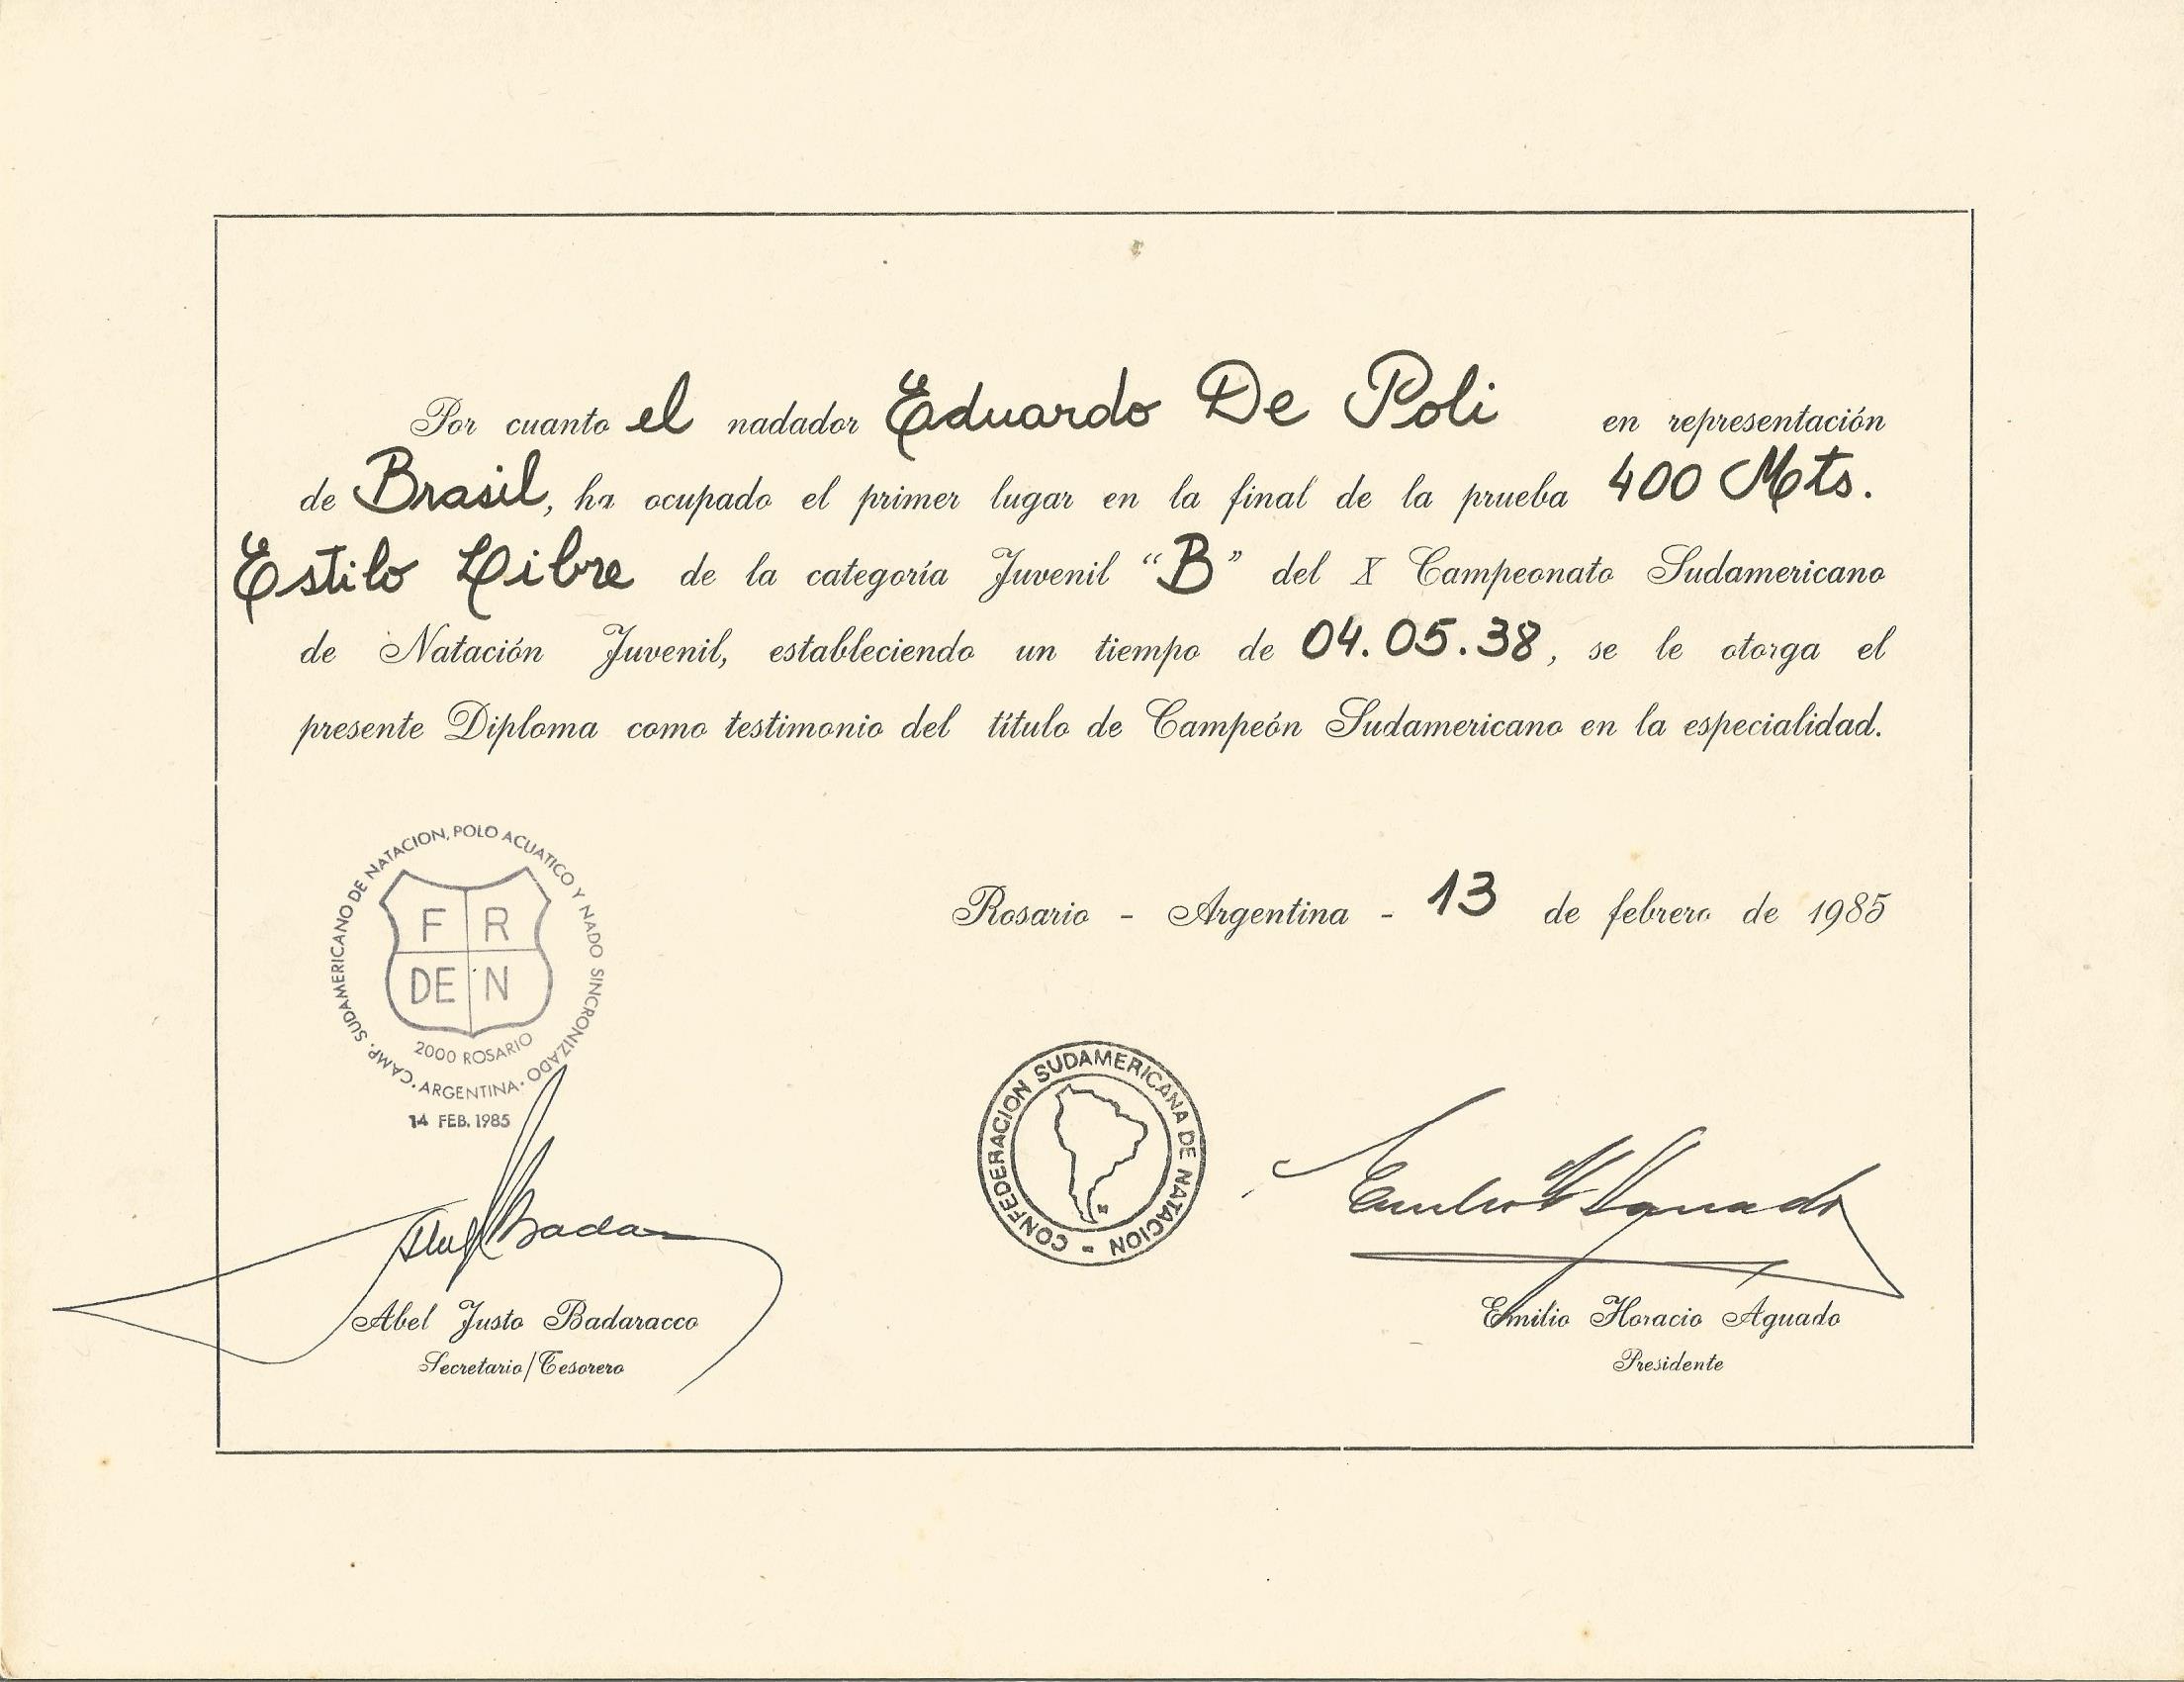 Por cuanto el nadador Eduardo De Poli en representación
de Brasil, ha ocupado el primer lugar en la final de la prueba 400 Mts.
Estilo Libre de la categoría Juvenil “B” del X Campeonato Sudamericano
de Natación Juvenil, estableciendo un tiempo de 04.05.38, se le otorga el
presente Diploma como testimonio del título de Campeón Sudamericano en la especialidad.
CAMP. SUDAMERICANO DE NATACION, POLO ACUATICO Y NADO SINCRONIZADO
F R
DE N
2000 ROSARIO
· ARGENTINA ·
14 FEB. 1985
Rosario - Argentina - 13 de febrero de 1985
CONFEDERACION SUDAMERICANA DE NATACION -
Emilio H Aguado
Abel Justo Badaracco
Secretario/Tesorero
Emilio Horacio Aguado
Presidente